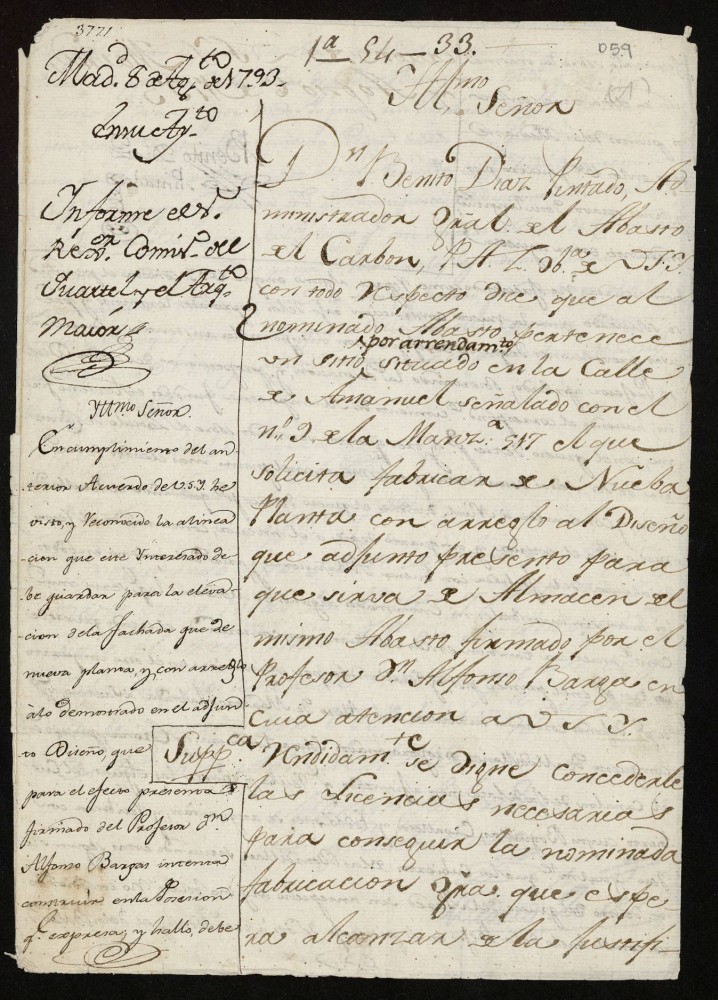 3721
1ª - 54 - 33.
D59
Madᵈ. 8 de Agᵗᵒ. de 1793.
en su Ayᵗᵒ
Informe el Sʳ.
Rexᵒʳ. Comisᵒ. del
Quartel y el Arqᵗᵒ
Maior
Yttmo Señor.
En cumplimiento del an-
terior Acuerdo de V.S.Y. he
visto, y reconocido la alinea
cion que este Ynteresado de-
be guardar para la eleva-
cion dela fachada que de
nueva planta, y con arreglo
à lo demostrado en el adjun-
to Diseño, que
para el efecto presenta
firmado del Profesor Dⁿ.
Alfonso Bargas intenta
construir en la Posesion
qᵉ. expresa, y hallo, debe
Yttmo
Señor
Dⁿ Benito Diaz Pintado, Ad
ministrador Gral. del Abasto
del Carbon, P. A. L. Ob.ª de V.S.Y.
con todo respecto dice que al
nominado Abasto pertenece
por arrendamᵗᵒ
un sitio situado en la Calle
de Amanuel señalado con el
n.º 9 de la Manz.ª 517 el que
solicita fabricar de Nueba
Planta con arreglo al Diseño
que adjunto presento para
que sirva de Almacen del
mismo Abasto firmado por el
Profesor Dⁿ. Alfonso Barga en
cuia atencion a V.S.Y.
Suppᶜᵃ. Rendidamᵗᵉ se digne concederle
las Licencias necesarias
para conseguir la nominada
fabricacion Gra. que espe
ra alcanzar de la justifi-